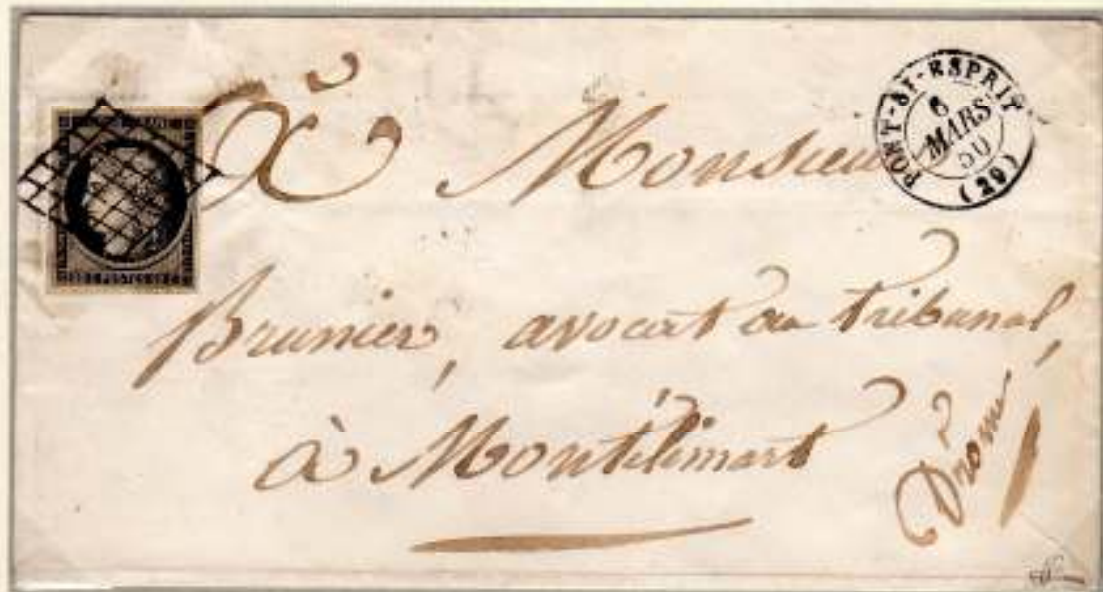 PONT-ST-ESPRIT
6
MARS
50
(29)
A Monsieur
Brunier, avocat au tribunal,
à Montélimart
Drome
POSTES